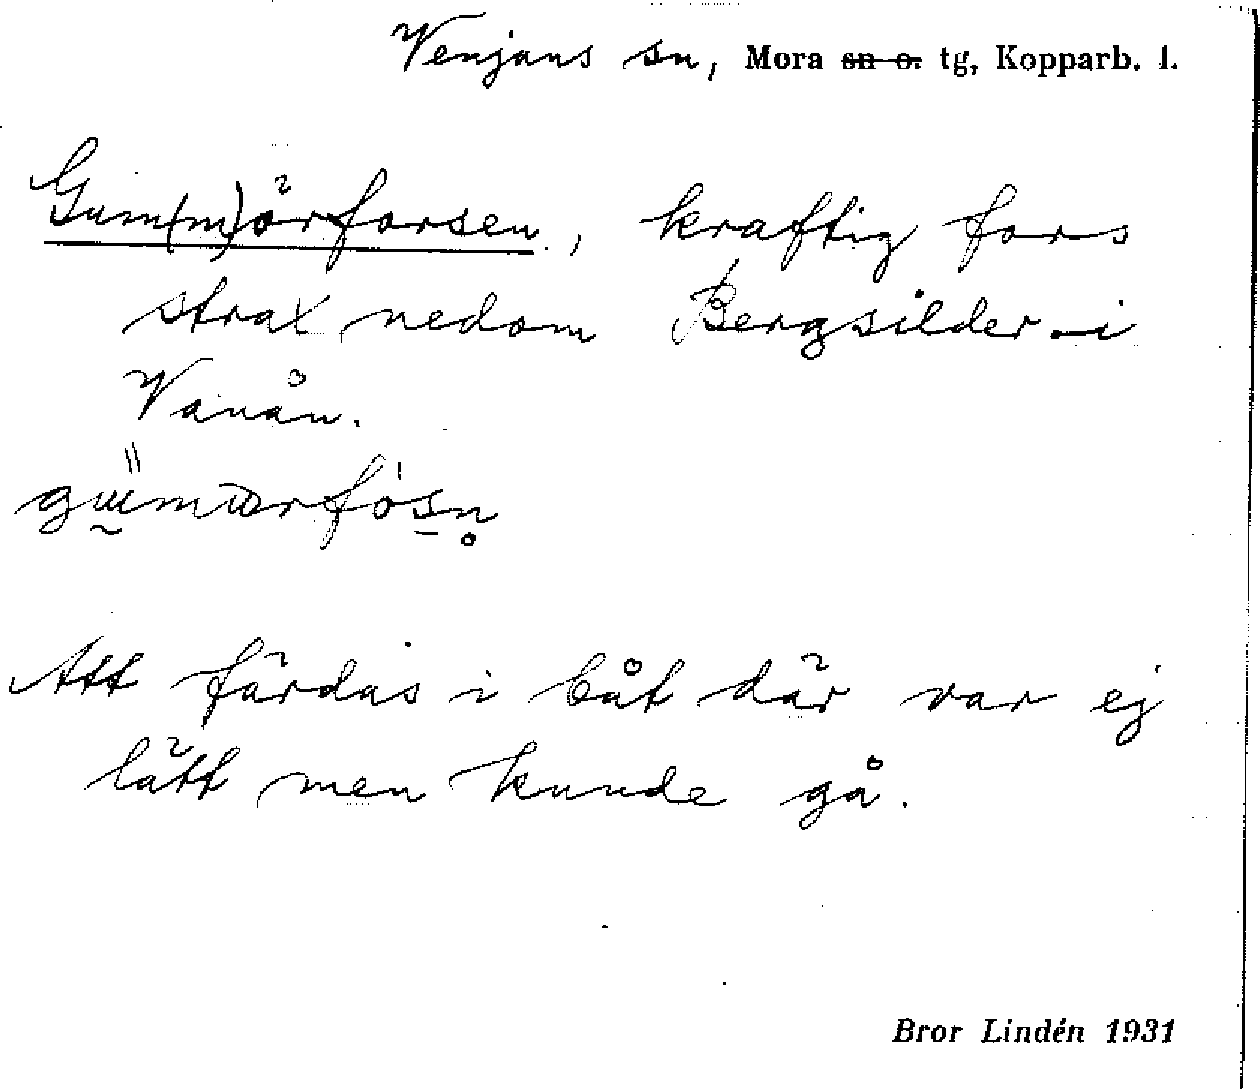 Venjans sn, Mora sn o. tg, Kopparb. l.
Gum(m)örforsen, kraftig fors
strax nedom Bergsilder i
Vanån.
Att färdas i båt där var ej
lätt men kunde gå.
Bror Lindén 1931